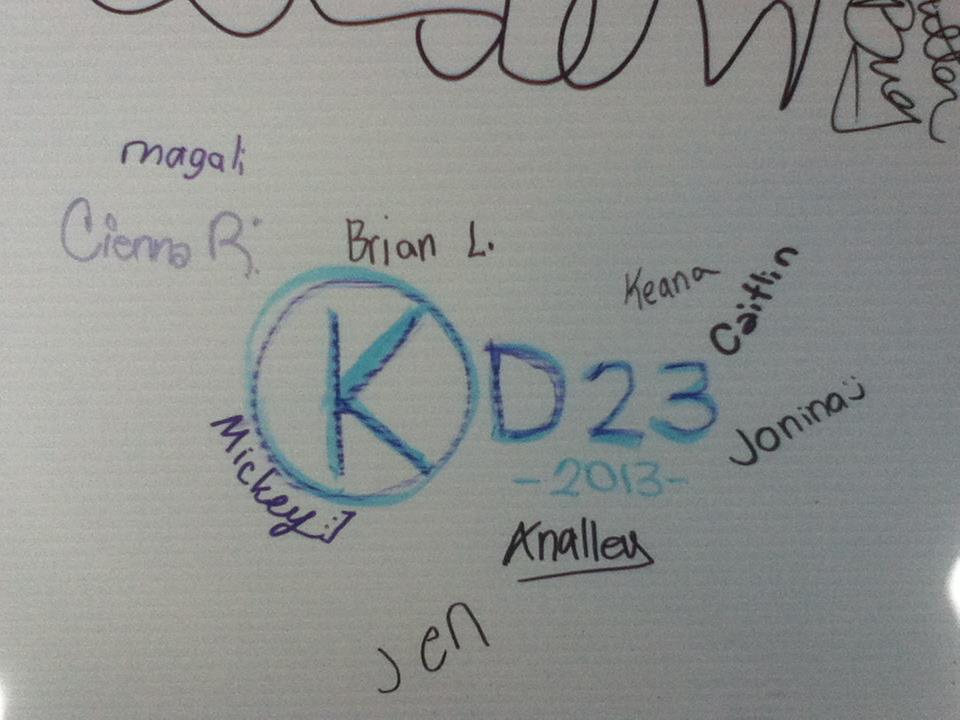 magali
Cienna R.
Brian L.
Keana
Caitlin
KD23
Jonina :)
Mickey :]
-2013-
Analley
Jen